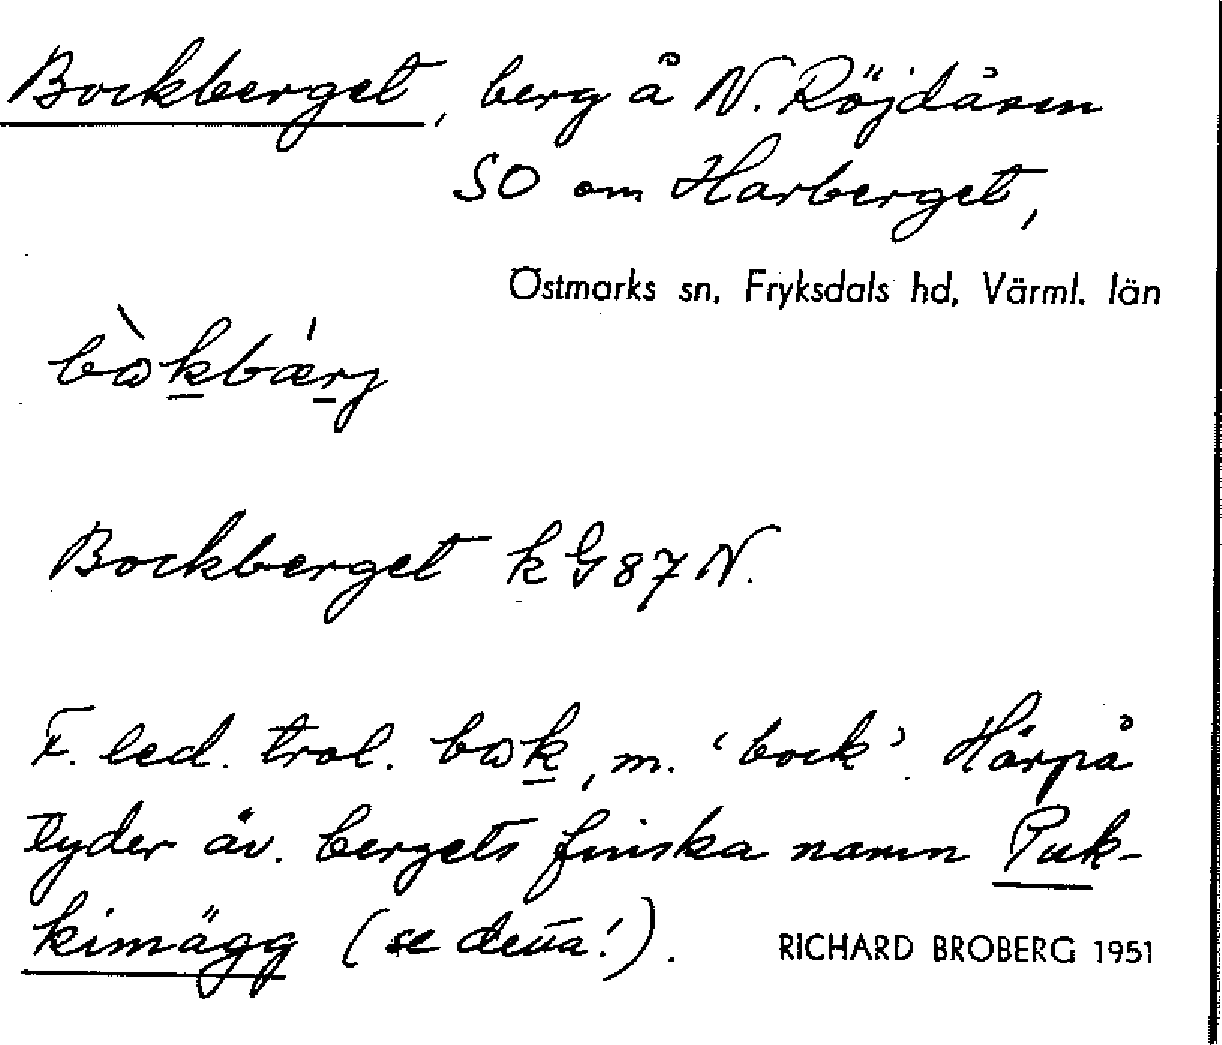 Bockberget, berg å N. Röjdåsen
SO om Harberget,
Östmarks sn, Fryksdals hd, Värml. län
bὼkbǽrj
Bockberget kG87N.
F. led. trol. bωk, m. 'bock'. Härpå
tyder äv. bergets finska namn Puk-
kimägg (se detta!).
RICHARD BROBERG 1951